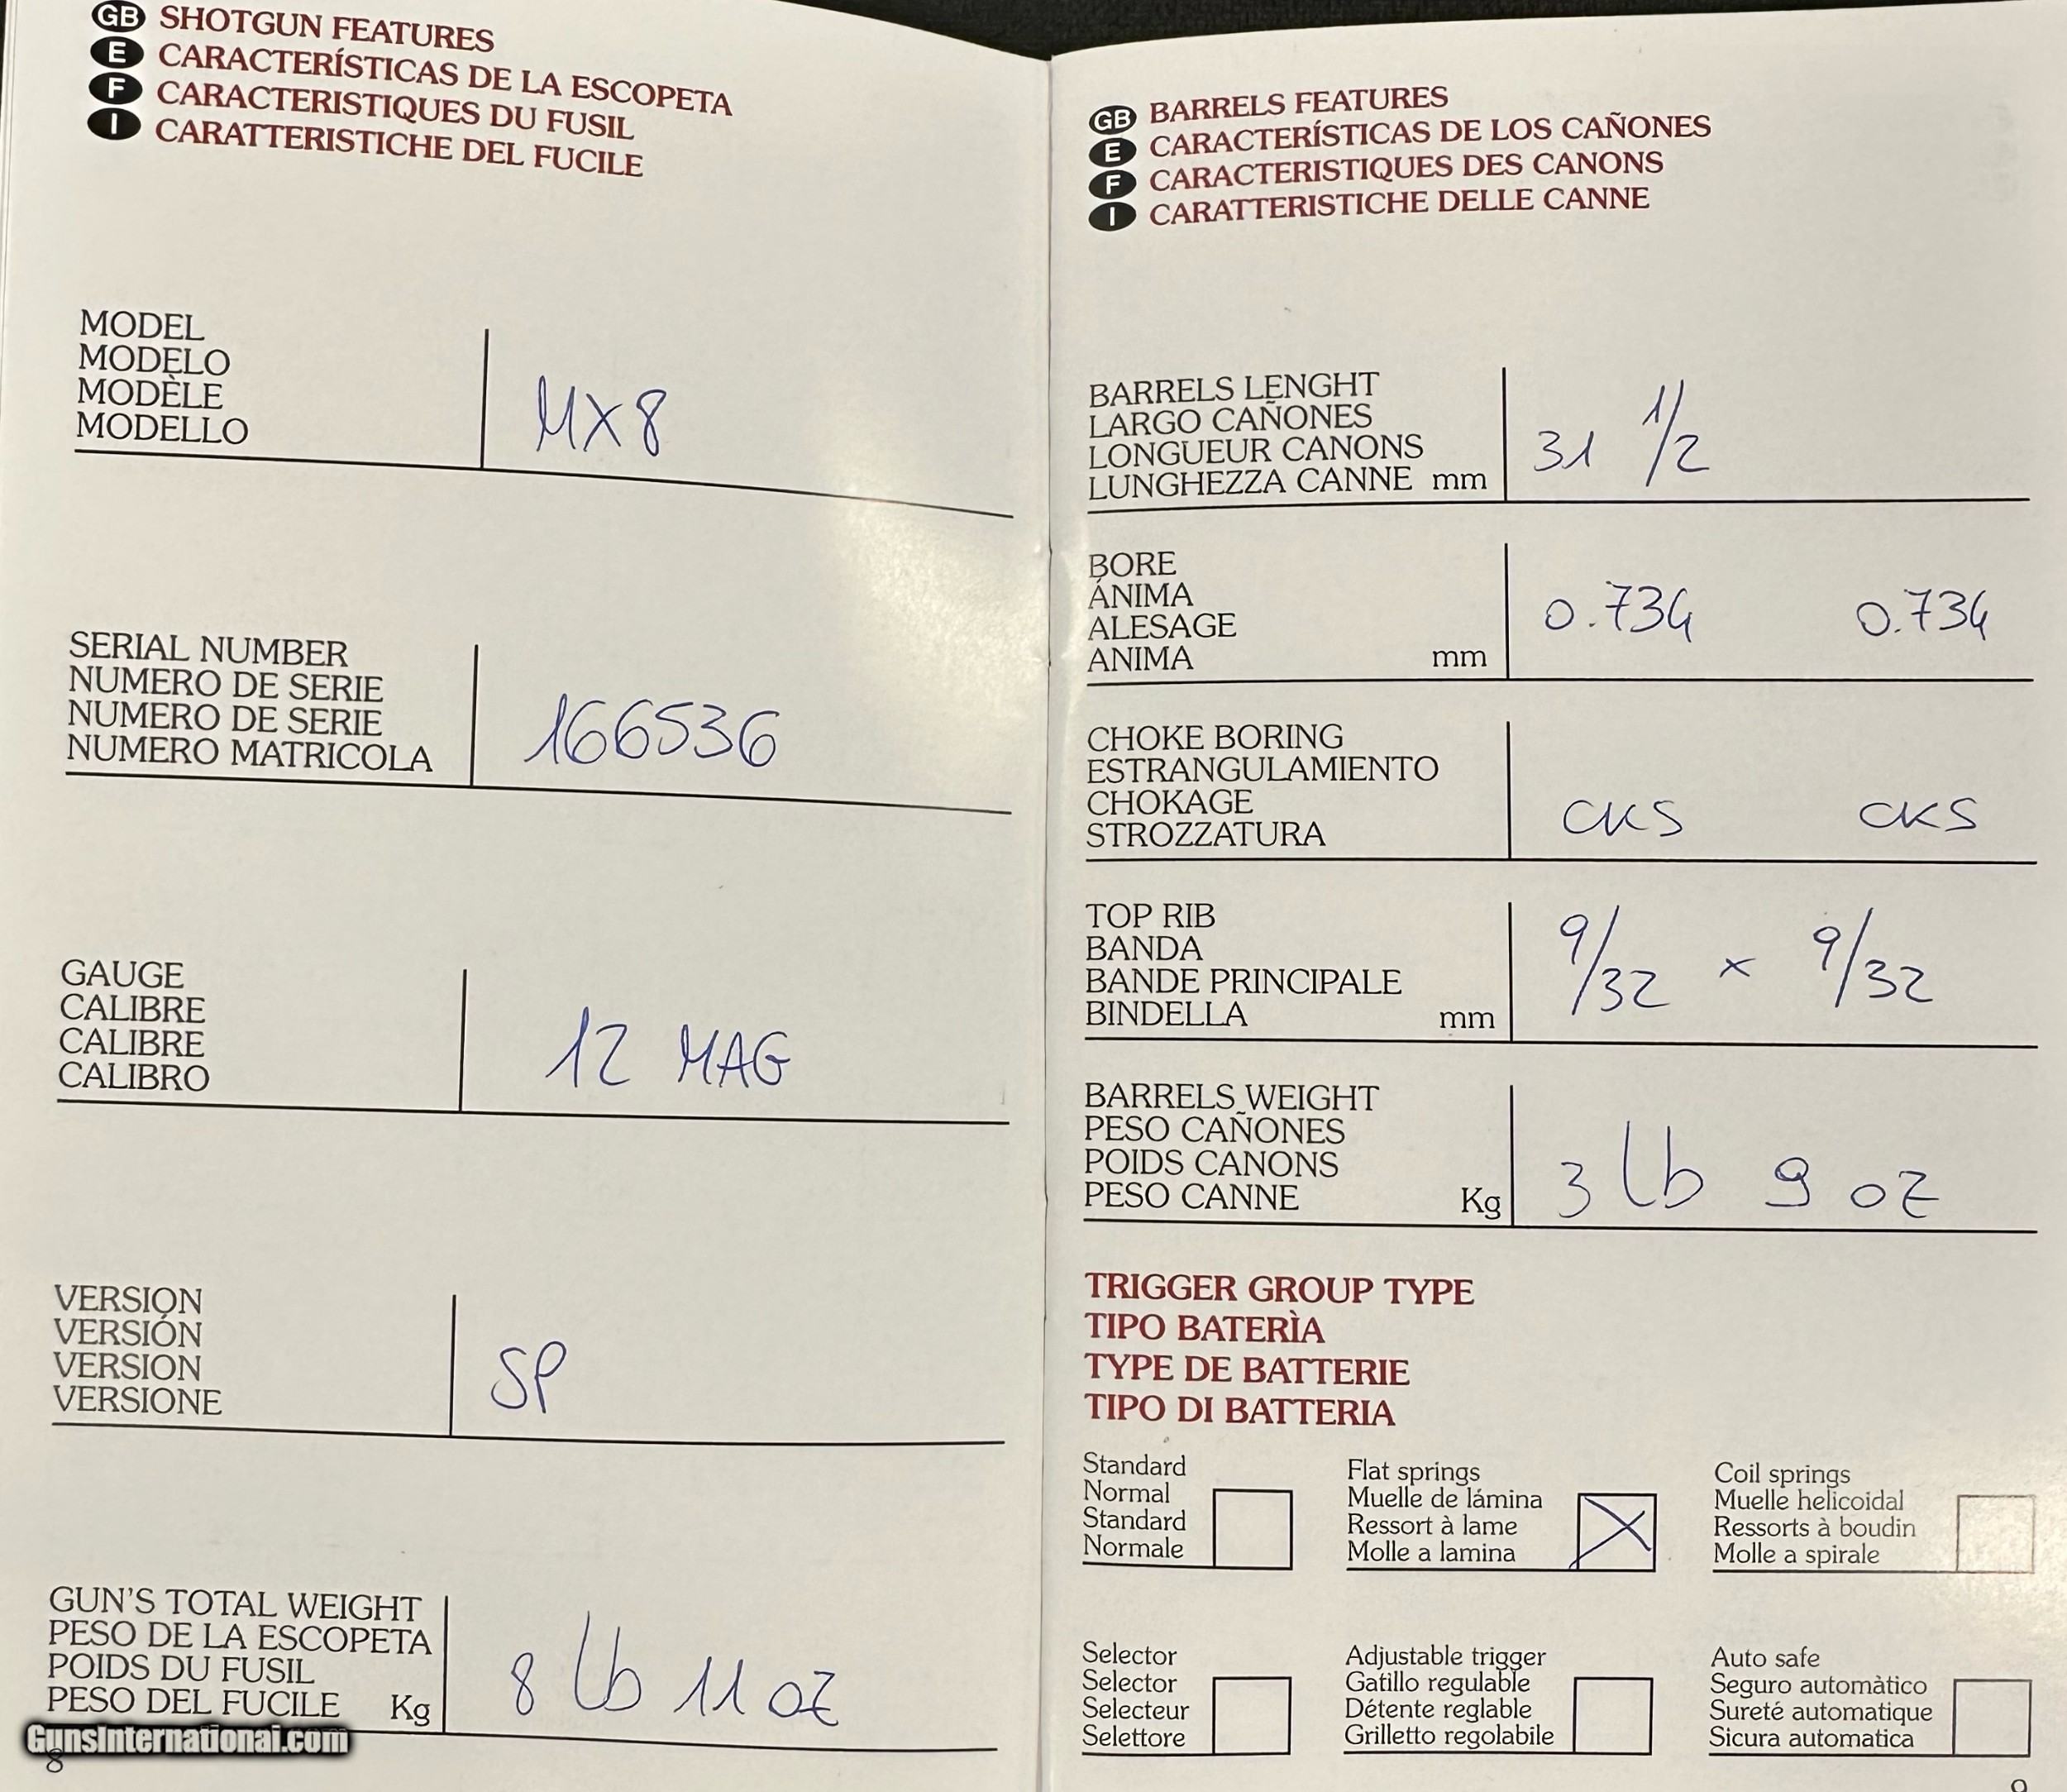 GB SHOTGUN FEATURES
E CARACTERÍSTICAS DE LA ESCOPETA
F CARACTERISTIQUES DU FUSIL
I CARATTERISTICHE DEL FUCILE
MODEL
MODELO
MODÈLE
MODELLO
MX8
SERIAL NUMBER
NUMERO DE SERIE
NUMERO DE SERIE
NUMERO MATRICOLA
166536
GAUGE
CALIBRE
CALIBRE
CALIBRO
12 MAG
VERSION
VERSIÓN
VERSION
VERSIONE
SP
GUN'S TOTAL WEIGHT
PESO DE LA ESCOPETA
POIDS DU FUSIL
PESO DEL FUCILE Kg
8 lb 11 oz
GunsInternational.com
8
GB BARRELS FEATURES
E CARACTERÍSTICAS DE LOS CAÑONES
F CARACTERISTIQUES DES CANONS
I CARATTERISTICHE DELLE CANNE
BARRELS LENGHT
LARGO CAÑONES
LONGUEUR CANONS
LUNGHEZZA CANNE mm
31 1/2
BORE
ÁNIMA
ALESAGE
ANIMA mm
0.734 0.734
CHOKE BORING
ESTRANGULAMIENTO
CHOKAGE
STROZZATURA
CKS CKS
TOP RIB
BANDA
BANDE PRINCIPALE
BINDELLA mm
9/32 x 9/32
BARRELS WEIGHT
PESO CAÑONES
POIDS CANONS
PESO CANNE Kg
3 lb 9 oz
TRIGGER GROUP TYPE
TIPO BATERÌA
TYPE DE BATTERIE
TIPO DI BATTERIA
Standard
Normal
Standard
Normale
Flat springs
Muelle de lámina
Ressort à lame
Molle a lamina
X
Coil springs
Muelle helicoidal
Ressorts à boudin
Molle a spirale
Selector
Selector
Selecteur
Selettore
Adjustable trigger
Gatillo regulable
Détente reglable
Grilletto regolabile
Auto safe
Seguro automàtico
Sureté automatique
Sicura automatica
9